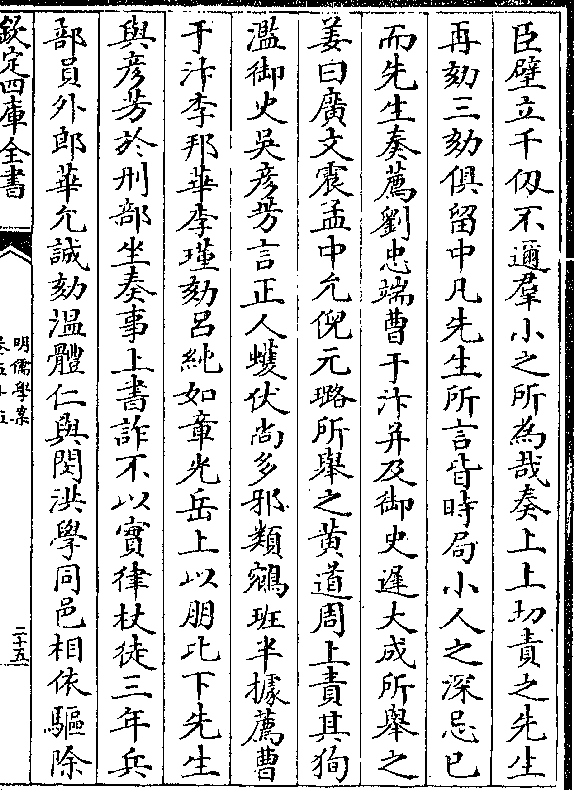 臣壁立千仭不邇羣小之所為哉奏上上切責之先生
再劾三劾俱留中凡先生所言皆時局小人之深忌已
而先生奏薦劉忠端曹于汴并及御史遲大成所舉之
姜曰廣文震孟中允倪元璐所舉之黄道周上責其狥
濫御史吳彦芳言正人蠖伏尚多邪類鵷班半據薦曹
于汴李邦華李瑾劾呂純如章光岳上以朋比下先生
與彦芳於刑部坐奏事上書詐不以實律杖徒三年兵
部員外郎華允誠劾溫體仁與閔洪學同邑相依驅除
欽定四庫全書
明儒學案
卷五十五
二十五